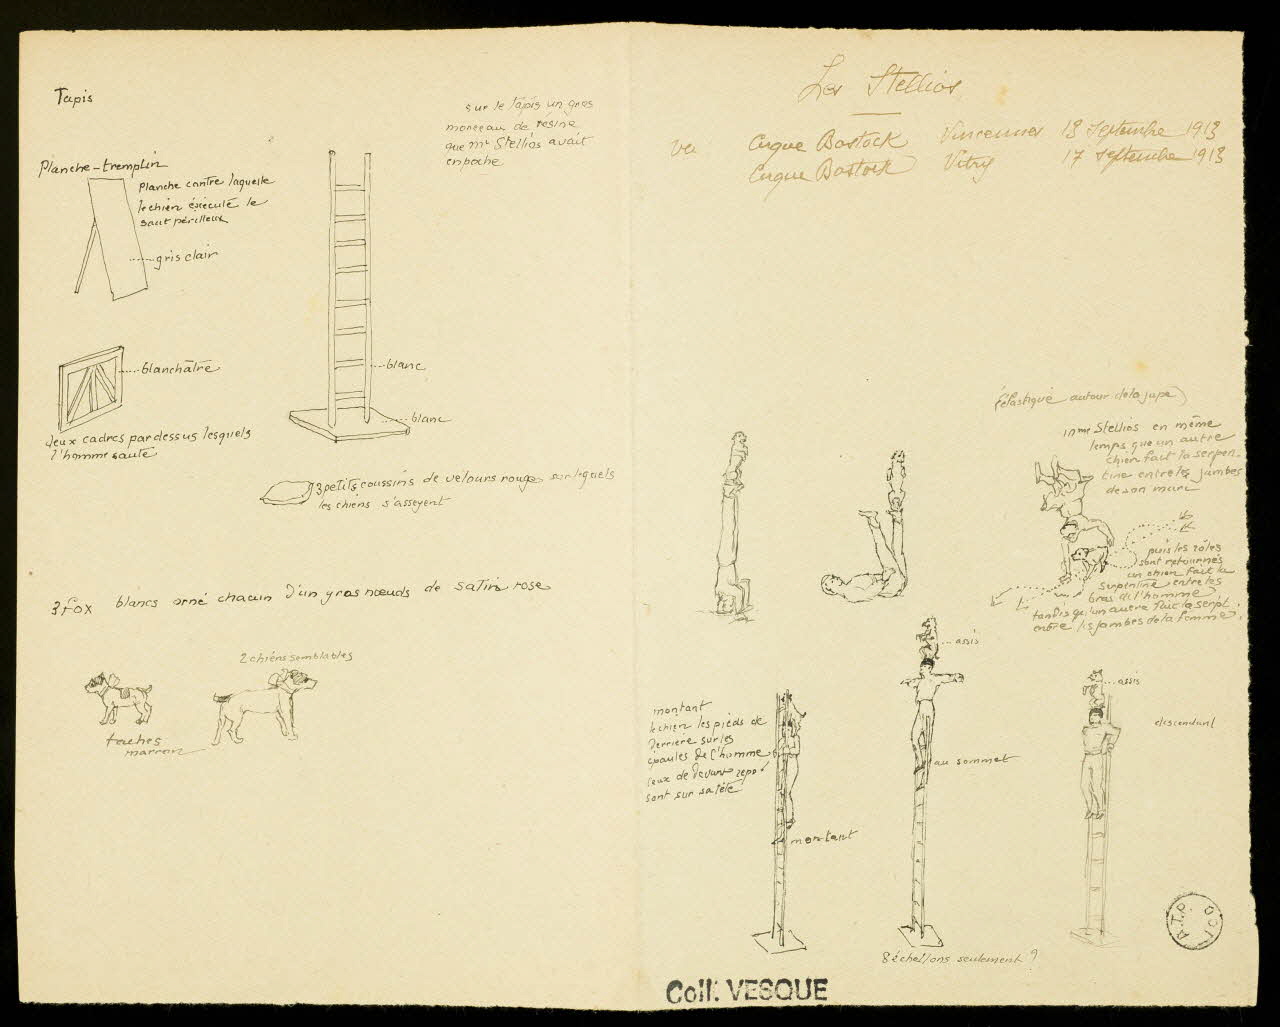 Tapis
sur le tapis un gros
morceau de résine
que Mr Stellios avait
en poche
Planche-tremplin
Planche contre laquelle
le chien éxécute le
saut périlleux
gris clair
blanchâtre
deux cadres par dessus lesquels
l'homme saute
blanc
blanc
3 petits coussins de velours rouge sur lequels
les chiens s'asseyent
3 fox blancs orné chacun d'un gros nœuds de satin rose
2 chiens semblables
taches
marron
Les Stellios
vu Cirque Bostock Vincennes 13 Septembre 1913
Cirque Bostock Vitry 17 Septembre 1913
(élastique autour de la jupe)
Mme Stellios en même
temps que un autre
chien fait la serpen-
tine entre les jambes
de son mari
puis les rôles
sont retournés
un chien fait la
serpentine entre les
bras de l'homme
tandis qu'un autre fait la serpt.
entre les jambes de la femme
assis
assis
montant
le chien les pieds de
derrière sur les
épaules de l'homme
ceux de devant repo
sont sur sa tête
descendant
au sommet
montant
8 échellons seulement ?
A.T.P. 001
Coll. VESQUE